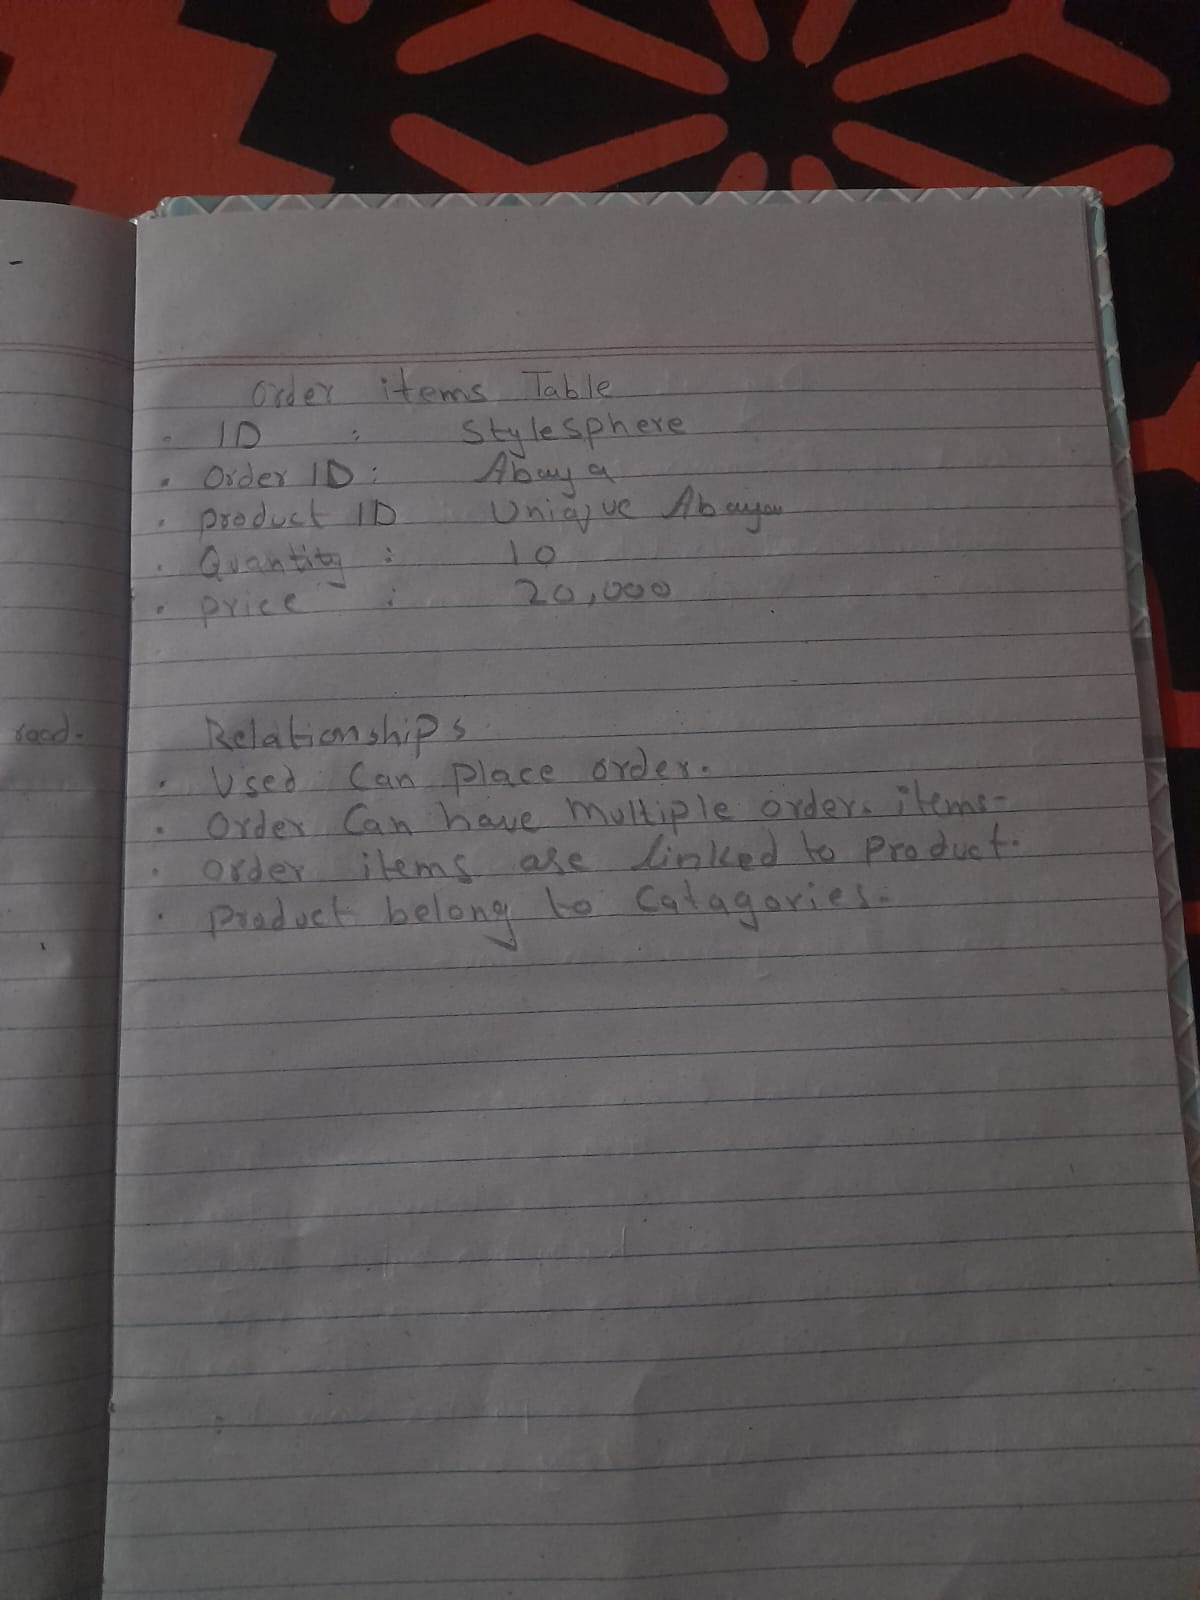 Order items Table
· ID : Stylesphere
· Order ID : Abaya
· Product ID Uniqjue Abaya
· Quantity : 10
· price : 20,000
Relationships
· Used Can Place order.
· Order Can have Multiple order. items-
· order items are linked to Product.
· Product belong to Catagories-